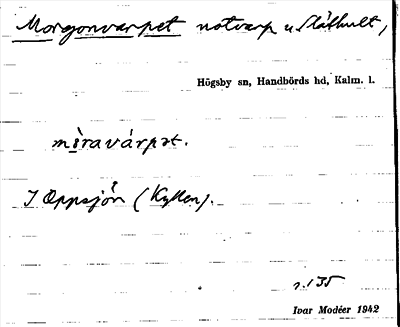 Morgonvarpet notvarp u. Slåthult,
Högsby sn, Handbörds hd, Kalm. l.
mèravárpət.
I Öppsjön (Kyllen).
s. 135
Ivar Modéer 1942